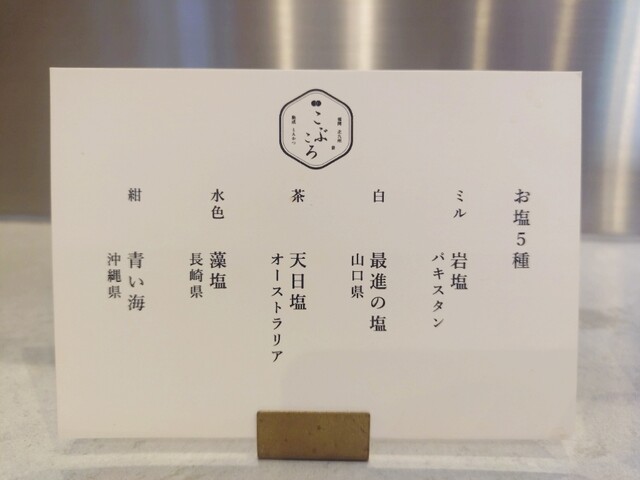 こぶ
ころ
お塩5種
ミル
岩塩
パキスタン
白
最進の塩
山口県
茶
天日塩
オーストラリア
水色
藻塩
長崎県
紺
青い海
沖縄県